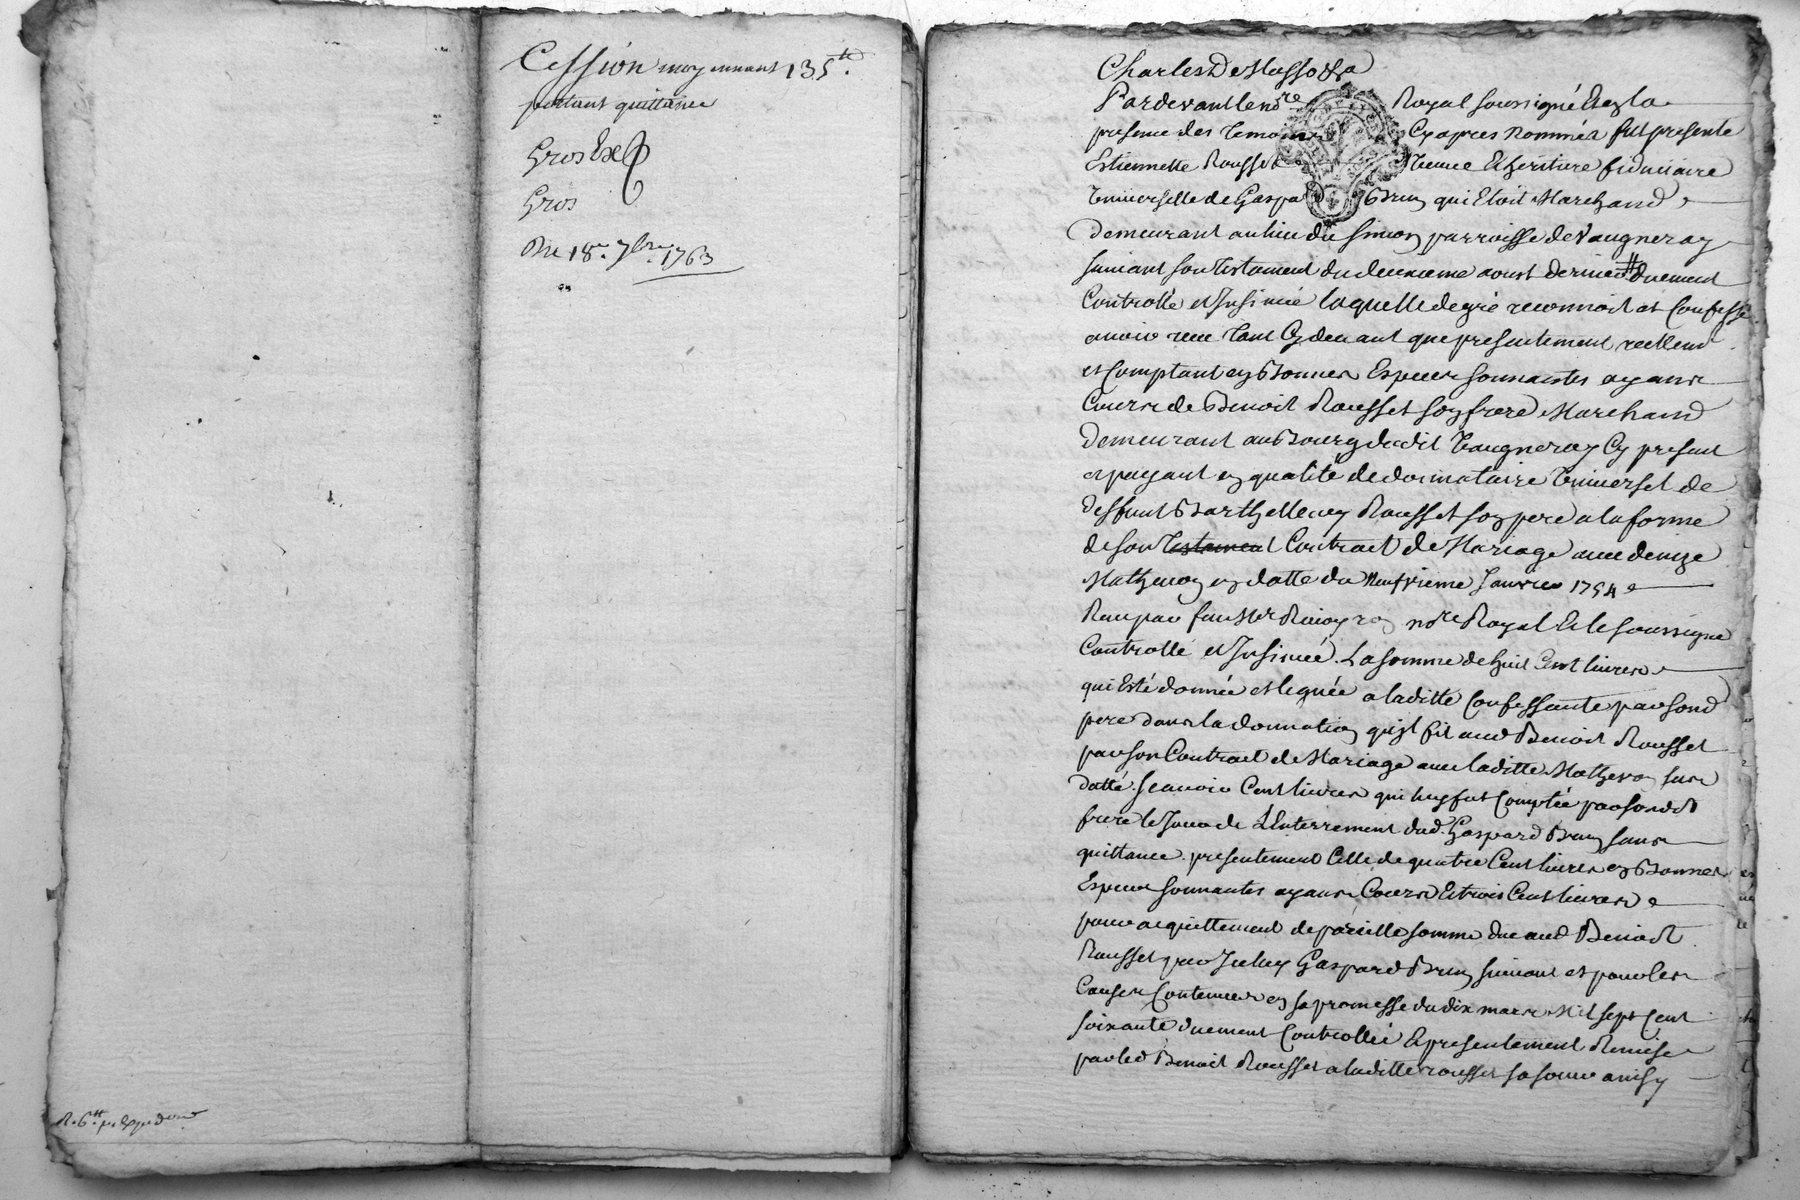 Cession moyennant 135tt.
portant quittance
Gros Ex
Gros
Du 18e. 7bre. 1763
R. 6tt p. Expedon
Pardevant le nore Royal soussigné Et en la
presence des temoins Cy apres nommés fut presente
Estiennette Rousset veuve Et heritiere fiduciaire
Universelle de Gaspard Brun qui Etoit Marchand
demeurant au lieu du simon parroisse de Vaugneray
suivant son testament du deuxieme aoust dernier duement
Controllé et Insinué laquelle de gré reconnoit et Confesse
avoir reçu tant Cy devant que presentement reellemt
et Comptant en Bonnes Especes sonnantes ayans
Cours de Benoit Rousset son frere Marchand
demeurant au Bourg dudit Vaugneray Cy present
et payant en qualité de donnataire Universel de
deffunt Barthellemy Rousset son pere a la forme
de son testament Contract de Mariage avec denize
Mathevon en datte du Neufvieme Janvier 1754
Reçu par feu Me nore Royal Et le soussigné
Controllé et Insinué. La somme de huit Cent livres
qui Esté donnée et leguée a laditte Confessante par sond
pere dans la donnation qu'il fit aud Benoit Rousset
par son Contract de Mariage avec laditte Mathevon sus
datté. scavoir Cent livres qui luy fut Comptée par sondt
frere le Jour de L'Enterrement dud. Gaspard Brun sans
quittance. presentement Celle de quatre Cent livres en Bonnes
Especes sonnantes ayans Cours Et trois Cent livres
pour acquittement de pareille somme due aud Benoit
Rousset par Iceluy Gaspard Brun suivant et pour les
Causes Contenues en sa promesse du dix mars Mil sept Cent
soixante duement Controllée Et presentement Remise
par led Benoit Rousset a laditte rousset sa soeur ainsy